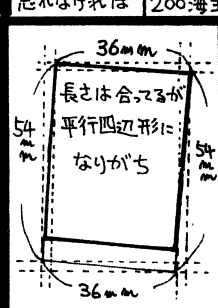 忘れなければ
200海
36mm
長さは合ってるが
平行四辺形に
なりがち
54mm
54mm
36mm